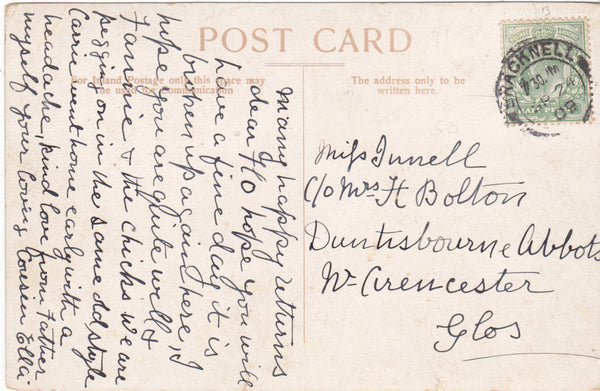 POST CARD
For Inland Postage only this space may
be used for Communication
The address only to be
written here.
BRACKNELL
Many happy returns
dear Flo hope you will
have a fine day it is
broken up again here, I
hope you are quite well &
Fannie & the chicks we are
pegging on in the same old style
Carrie went home early with a
headache, kind love from Father
myself your loving Cousin Ella
Miss Tunnell
C/o Mrs H Bolton
Duntisbourne Abbots
Nr Cirencester
Glos